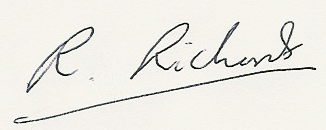 R. Richards